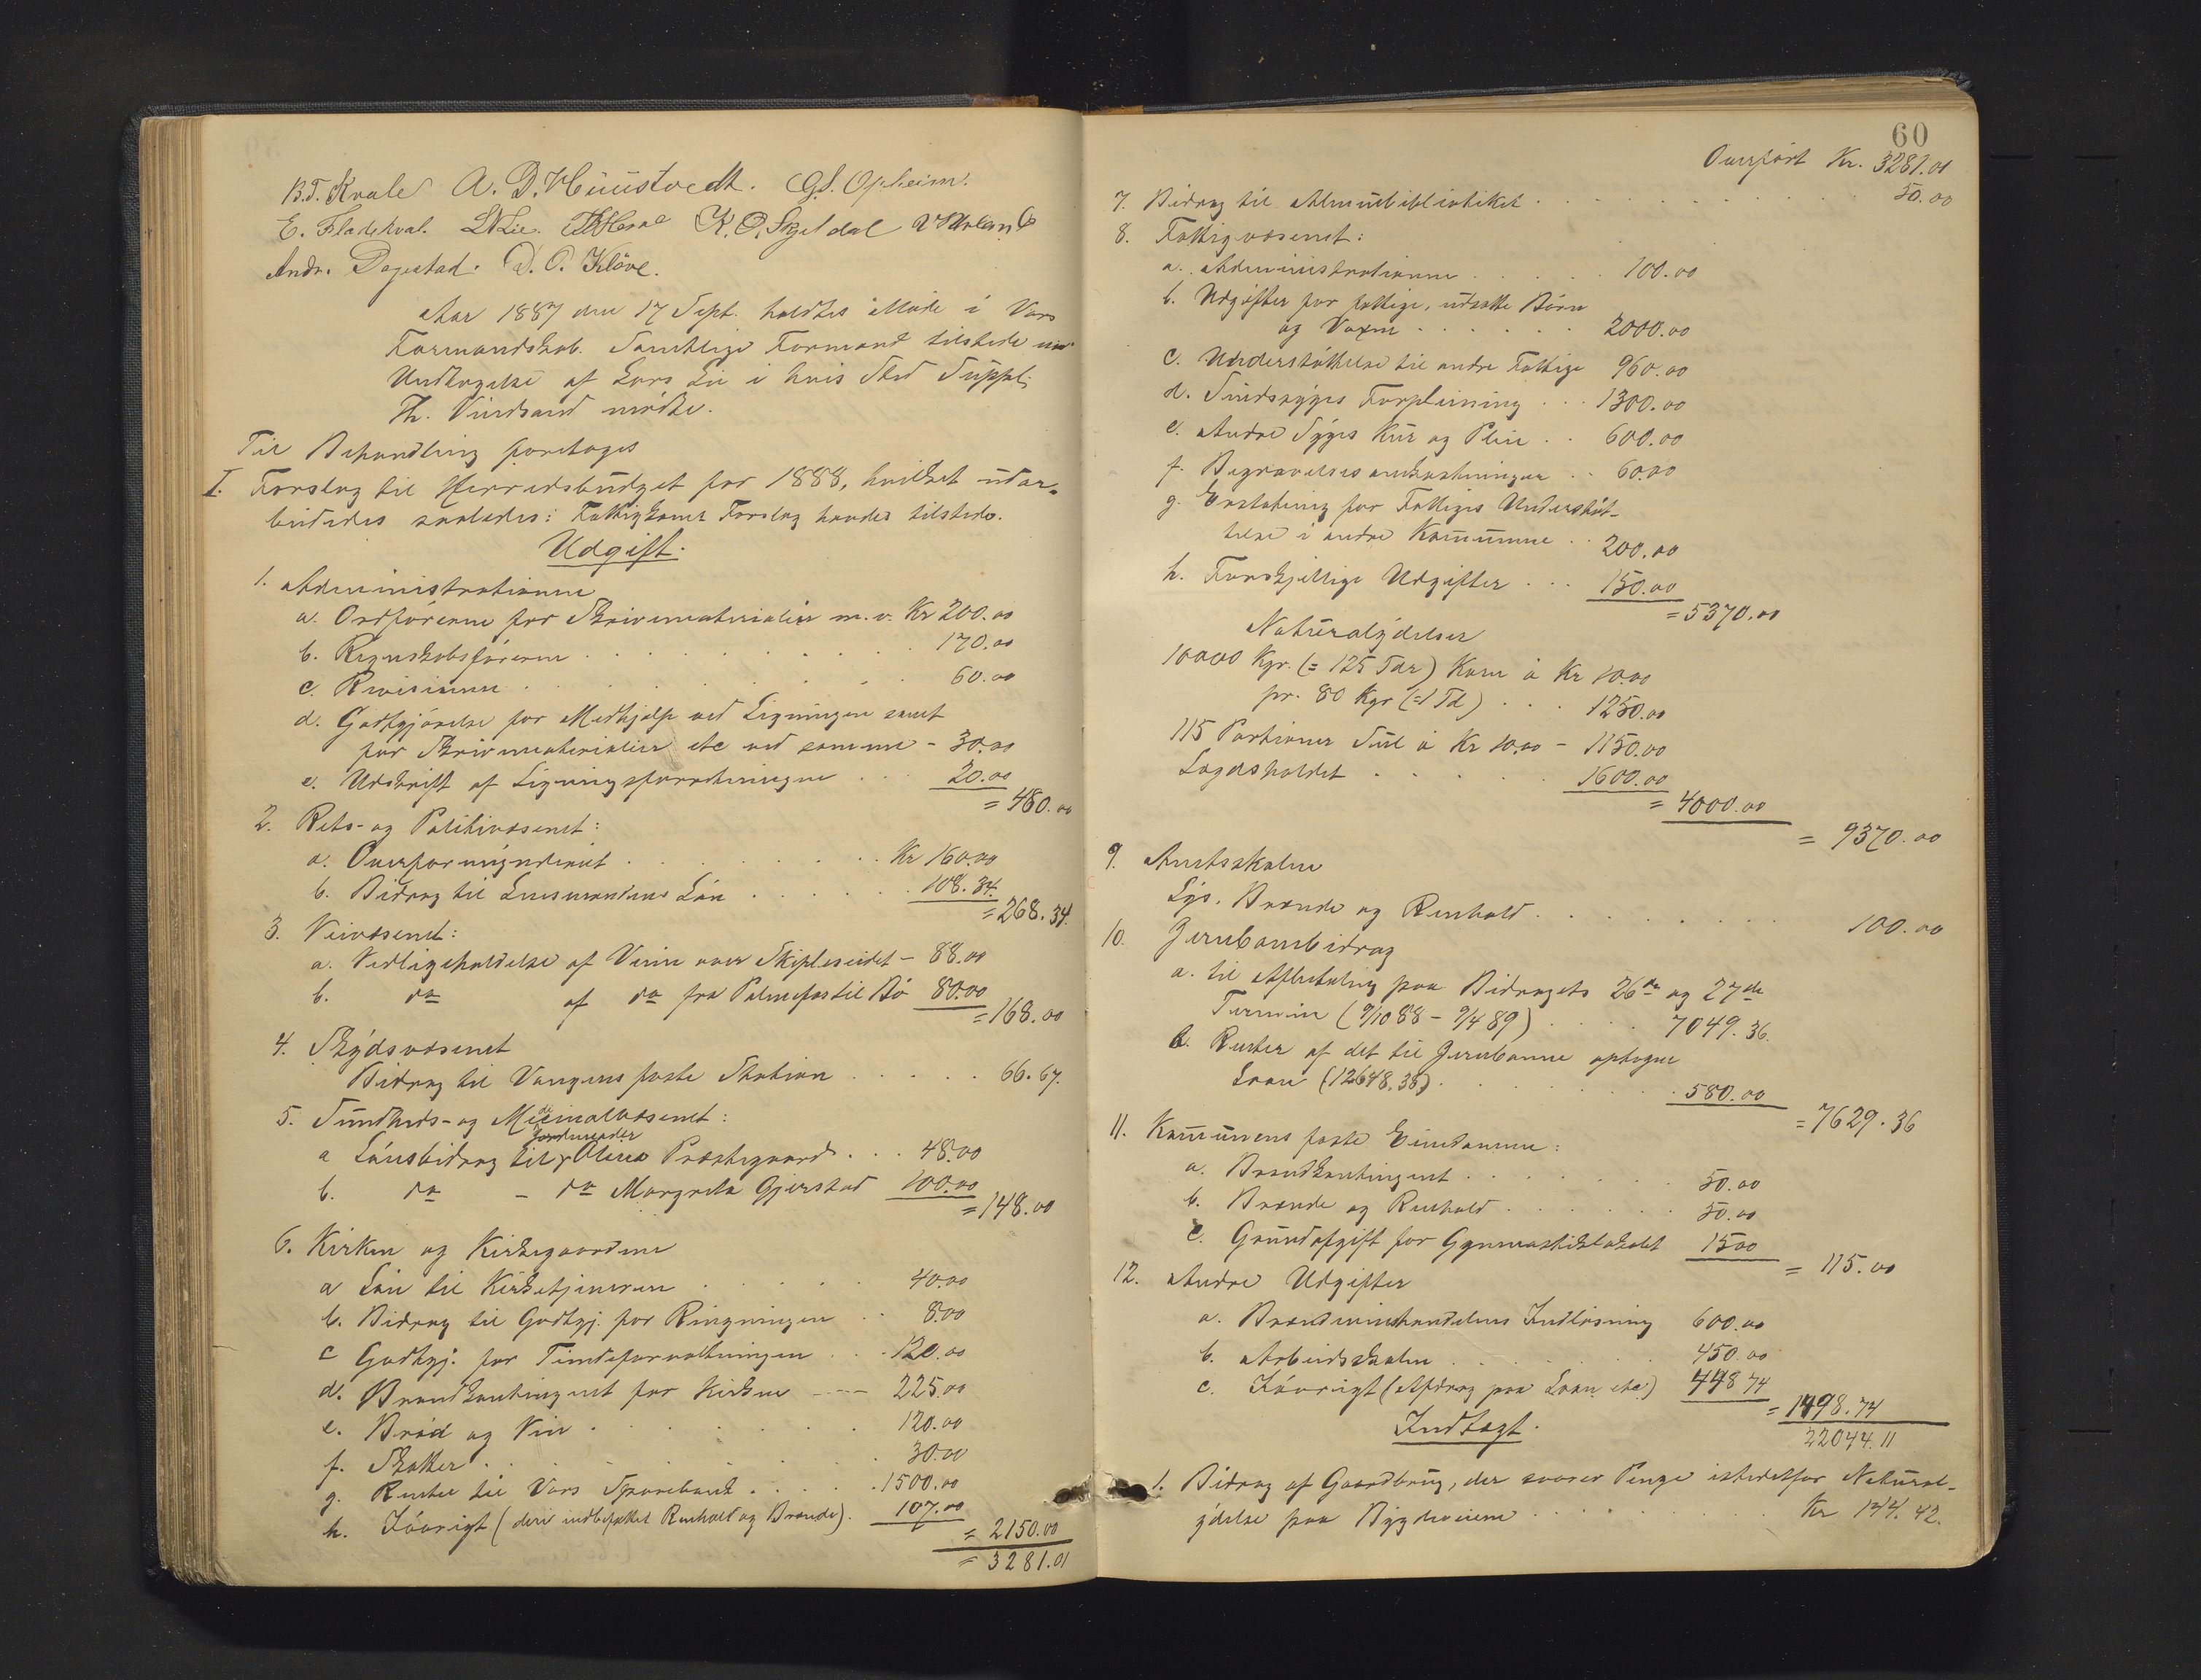 B.T. Kvale A. D. Huustvedt. G.S. Opheim.
E. Fladekval. LNLie. K. O. Skjeldal
Andr. Dagestad. D. O. Kløve.
Aar 1887 den 17 Sept. holdtes Møde i Vors
Formandskab. Samtlige Formænd tilstede med
Undtagelse af Lars Lie i hvis Sted Suppl:
Th. Vindsand mødte.
Til Behandling foretoges
I. Forslag til Herredsbudget for 1888, hvilket udar-
beidedes saaledes: Fattigkom: Forslag havdes tilstede.
Udgift.
1. Administrationen
a. Ordføreren for Skrivematerialier m.v. Kr 200.00
b. Regnskabsføreren 170.00
c. Revisionen 60.00
d. Godtgjørelse for Medhjælp ved Ligningen samt
for Skrivematerialier etc ved samme - 30.00
e. Udskrift af Ligningsforretningen 20.00
= 480.00
2. Rets- og Politivæsenet:
a. Overformynderiet Kr 160.00
b. Bidrag til Lensmandens Løn 108.34.
= 268.34.
3. Veivæsenet:
a. Vedligeholdelse af Veien over Skipleseidet - 88.00
b. do af do fra Palmefos til Bø 80.00
= 168.00
4. Skydsvæsenet
Bidrag til Vangens faste Station 66.67.
5. Sundheds- og Medicinalvæsenet:
a Lønsbidrag til Jordmoder Olena Præstegaard 48.00
b. do - do Margrete Gjerstad 100.00
= 148.00
6. Kirken og Kirkegaardene
a Løn til Kirketjeneren 40.00
b. Bidrag til Godtgj. for Ringningen 8.00
c Godtgj. for Tiendeforvaltningen 120.00
d. Brandkontingent for Kirken 225.00
e. Brød og Vin 120.00
f. Skatter 30.00
g. Renter til Vors Sparebank 1500.00
h. Iøvrigt (deri indbefattet Renhold og Brænde). 107.00
= 2150.00
= 3281.01
60
Overført Kr. 3281.01
7. Bidrag til Almuebibliotiket 50.00
8. Fattigvæsenet:
a. Administrationen 100.00
b. Udgifter for fattige, udsatte Børn
og Voxne 2000.00
c. Understøttelse til andre Fattige 960.00
d. Sindssyges Forpleining 1300.00
e. Andre Syges Kur og Pleie 600.00
f. Begravelsesomkostninger 60.00
g. Erstatning for Fattiges Understøt-
telse i andre Kommuner 200.00
h. Forskjellige Udgifter 150.00
= 5370.00
Naturalydelser
10000 Kgr. (= 125 Tdr) Korn à Kr 10.00
pr. 80 Kgr (=1 Td) 1250.00
115 Portioner Sul à Kr 10.00 - 1150.00
Lægdsholdet 1600.00
= 4000.00
= 9370.00
9. Amtsskolen
Lys, Brænde og Renhold 100.00
10. Jernbanebidrag
a. til Afbetaling paa Bidragets 26de og 27de
Termin (9/10 88 - 9/4 89) 7049.36.
b. Renter af det til Jernbanen optagne
Laan (12648.38) 580.00
= 7629.36
11. Kommunens faste Eiendomme:
a. Brandkontingent 50.00
b. Brænde og Renhold 50.00
c. Grundafgift for Gymnastiklokalet 15.00
= 115.00
12. Andre Udgifter
a. Brændevinshandelens Indløsning 600.00
b. Arbeidsskolen 450.00
c. Iøvrigt (Afdrag paa Laan etc) 448 74
= 1498.74
22044.11
Indtægt.
1. Bidrag af Gaardbrug, der svarer Penge istedetfor Natural-
ydelse paa Bygdeveiene Kr 144.42.